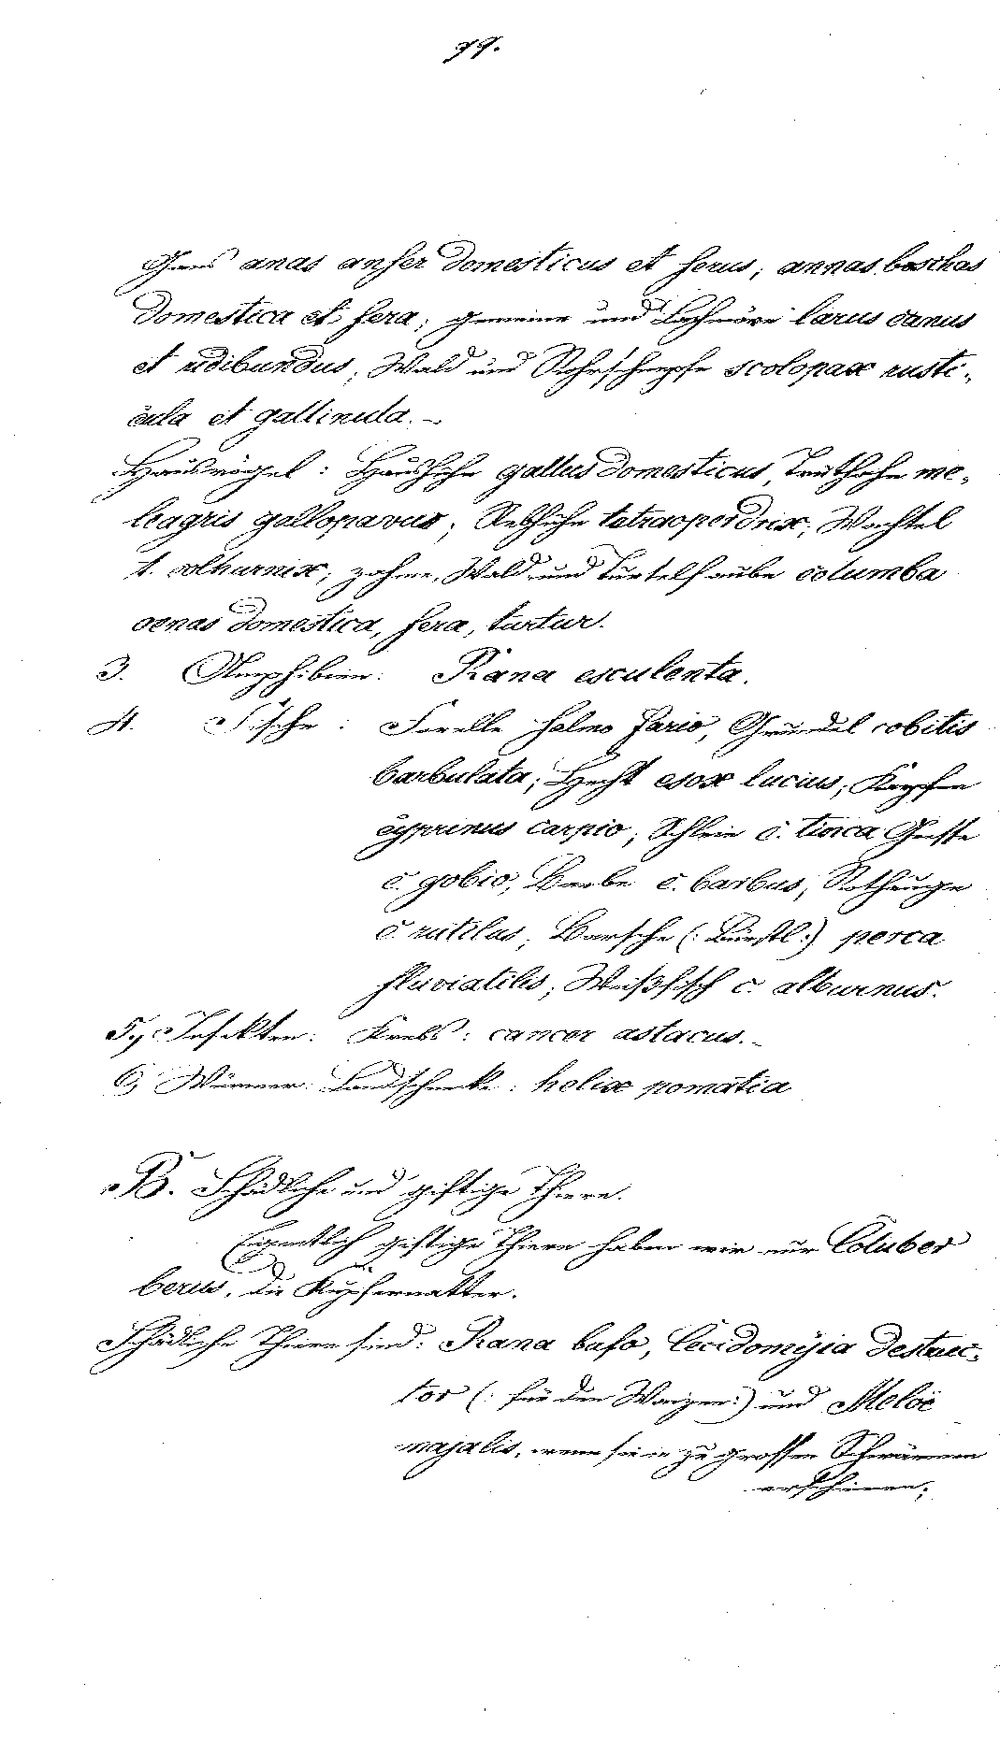 Gans anas anser domesticus et ferus; annas boschas
domestica et fera; gemeine und Lachmöve larus canus
et ridibundus; Wald und Rohrschnepfe scolopax rusti-
cula et gallinula.-
Hausvögel: Haushuhn gallus domesticus, Truthahn me-
leagris gallopavus; Rebhuhn tetraoperdrix; Wachtel
t. cothurnix; zahme, Wald und Turteltaube columba
oenas domestica, fera, turtur.
3. Amphibien: Rana esculenta.
4. Fische: Forelle salmo fario, Grundel cobitis
barbulata; Hecht esox lucius; Karpfen
cyprinus carpio; Schlein c. tinca Gresse
c. gobio; Barbe c. barbus; Rothauge
c. rutilus; Barsche (: Bürstl:) perca
fluviatilis; Weißfisch c. alburnus.
5, Insekten: Krebs: cancer astacus.-
6, Würmer: Landschnecke: helix pomatia
B. Schädliche und giftige Thiere.
Eigentlich giftige Thiere haben wir nur Coluber
berus, die Kupfernatter.
Schädliche Thiere sind: Rana bufo, Cecidomÿia destruc-
tor (: für den Waizen:) und Meloë
majalis, wenn sie in zu grossen Schwärmen
erscheinen;